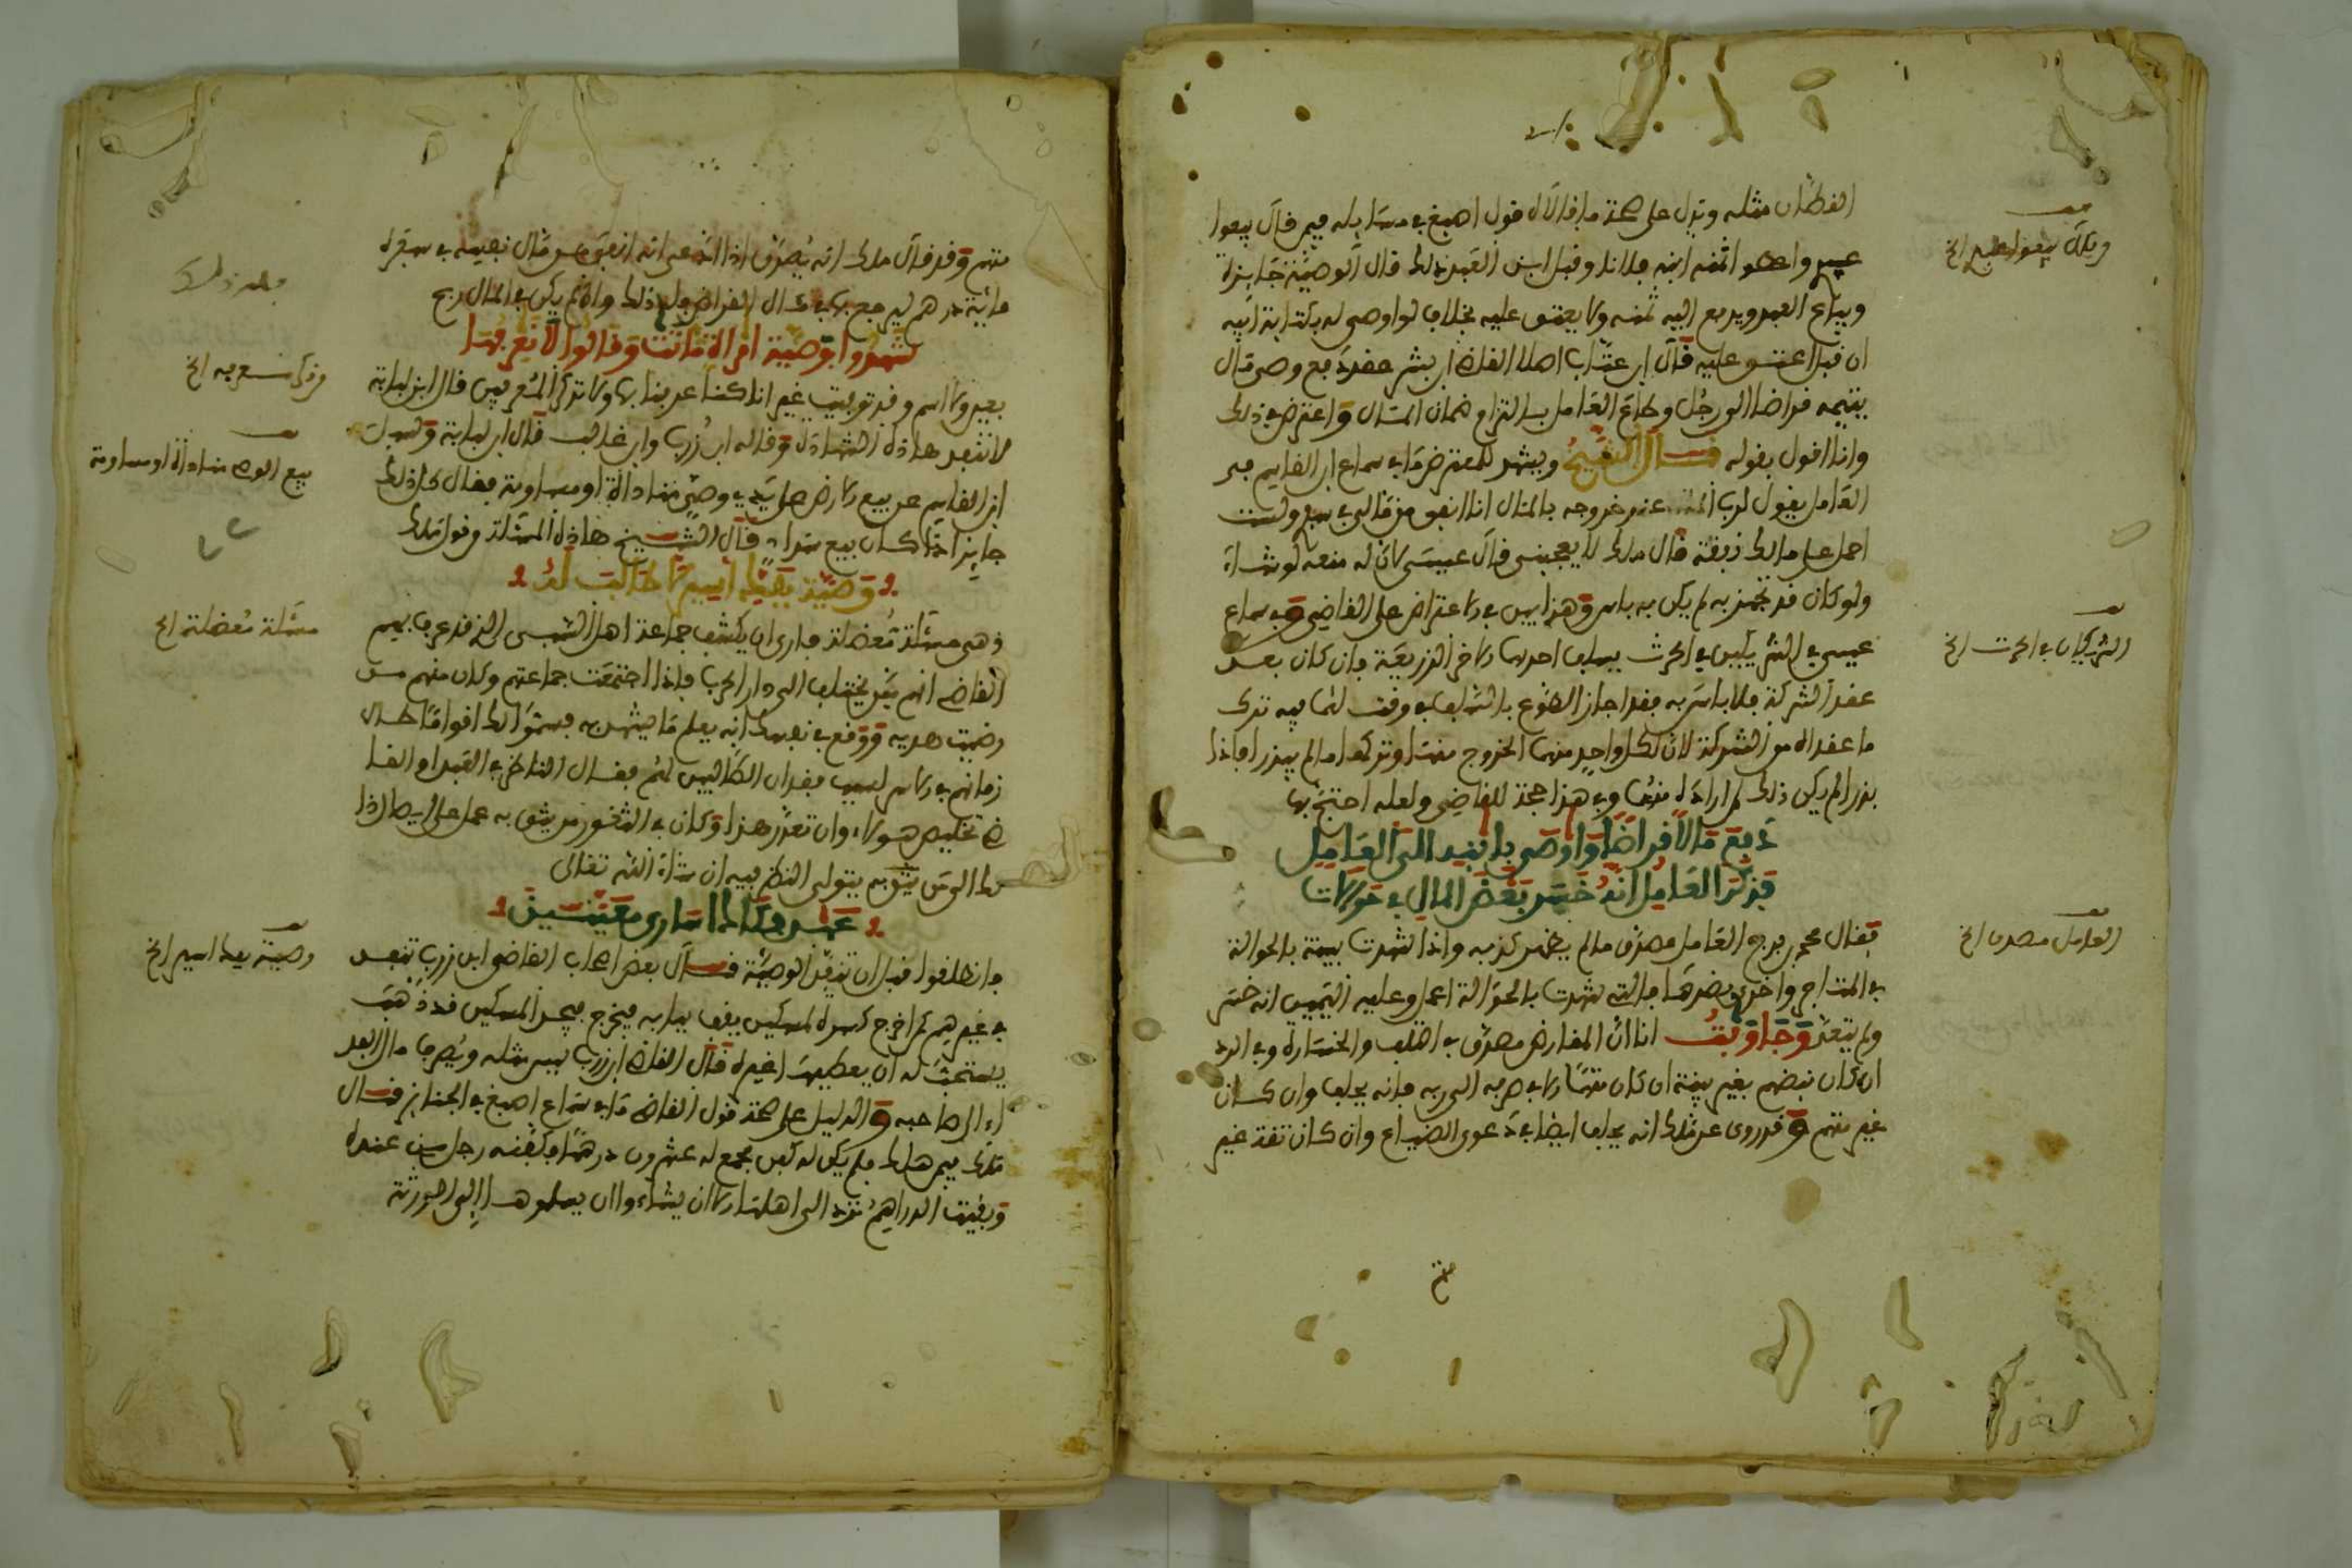 القطان مثله ويدل على صحة ما قالاه قول اصبغ في مسايله فيمن قال بيعوا
عبدي واعطوا ثمنه ابنه فلانا وقبل الابن العبد ذلك قال الوصية جايزة
ويباع العبد ويدفع اليه ثمنه ولا يعتق عليه بخلاف لو اوصى له بكتابة ابيه
ان قبل عتق عليه قال ابن عتاب املا القاضي ابن بشر عقد دفع وصي مال
يتيمه قراضا الى رجل وطاع العامل بالتزام ضمان المال واعترض في ذلك
وانا اقول بقوله قال الشيخ ويشهد للمعترض ما في سماع ابن القاسم في
العامل يقول لرب المال عند خروجه بالمال انا انفق من مالي في سفري ولست
احمل على مالك نفقة قال مالك لا يعجبني قال عيسى لان له منعه لو شاء
ولو كان قد تجهز به لم يكن به باس وهذا بين في الاعتراض على القاضي وفي سماع
عيسى في الشريكين في الحرث يسلف احدهما الاخر الزريعة فان كان بعد
عقد الشركة فلا باس به فقد اجاز الطوع بالسلف في وقت لهما فيه ترك
ما عقداه من الشركة لان لكل واحد منهما الخروج منها وتركها ما لم يبذرا فاذا
بذرا لم يكن ذلك لمن اراده منهما وفي هذا حجة للقاضي ولعله احتج بها
دفع مالا قراضا واوصى بابنيه الى العامل
فذكر العامل انه خسر بعض المال في حوالات
فقال محمد بن فرج العامل مصدق ما لم يظهر كذبه واذا شهدت بينة بالحوالة
في المتاجر واخرى بضدها فالتي شهدت بالحوالة اعمل وعليه اليمين انه خسر
ولم يتعد وجاوبت انا ان المقارض مصدق في التلف والخسارة وفي الرد
ان كان قبضه بغير بينة ان كان متهما الا في صرفه الى ربه فانه يحلف وان كان
غير متهم وقد روي عن مالك انه يحلف ايضا في دعوى الضياع وان كان ثقة غير
وقال بيعوا عبدي الخ
الشريكان في الحرث الخ
العامل مصدق الخ
متهم وقد قال مالك انه يصدق اذا ادعى انه انفق من مال نفسه في سفره
مائة درهم ليرجع بها في مال القراض فله ذلك وان لم يكن في المال ربح
شهدوا بوصية امراة ماتت وقالوا لا نعرفها
بعين ولا اسم وقد توفيت غير انا كنا عرفنا بها ولا نذكر المعرفين قال ابن لبابة
لا تنفذ هاذه الشهادة وقاله ابن زرب وابن غالب قال ابن لبابة وسيل
ابن القاسم عن بيع الارض على يدي وصي مناداة او مساومة فقال كل ذلك
جايز اذا كان بيع سداد قال الشيخ هاذه المسئلة وقول مالك
وصية بفك اسير
وهي مسئلة معضلة فارى ان يكشف جماعة اهل الشمس الذي قد عرف بهم
القاضي انهم ممن يختلف الى دار الحرب فاذا اجتمعت جماعتهم وكان منهم من
رضيت هديه ووقع في نفسك انه يعلم ما يشهد به فيسموا لك اقواما طال
زمانهم في الاسر
تخليص هؤلاء وان تعذر هذا وكان في الثغور من يثق به عمل على ايصال ذا
لك الى من يثق به يتولى النظر فيه ان شاء الله تعالى
عهد بفك اسارى معينين
فانطلقوا قبل ان تنفذ الوصية قال بعض اصحاب القاضي ابن زرب تنفذ
في غيرهم كمن اخرج كسرة لمسكين يقف ببابه فيخرج فيجد المسكين قد ذهب
يستحب له ان يعطيها غيره قال القاضي ابن زرب ليس مثله ويصرف مال الفد
اء الى صاحبه والدليل على صحة قول القاضي ما في سماع اصبغ في الجنايز قال
مالك فيمن هلك فلم يكن له كفن فجمع له عشرون درهما فكفنه رجل من عنده
وبقيت الدراهم ترد الى اهلها الا ان يشاءوا ان يسلموها الى الورثة
فله ذلك
بيع الوصي مناداة او مساومة
مسئلة معضلة الخ
وصية بفك اسير الخ